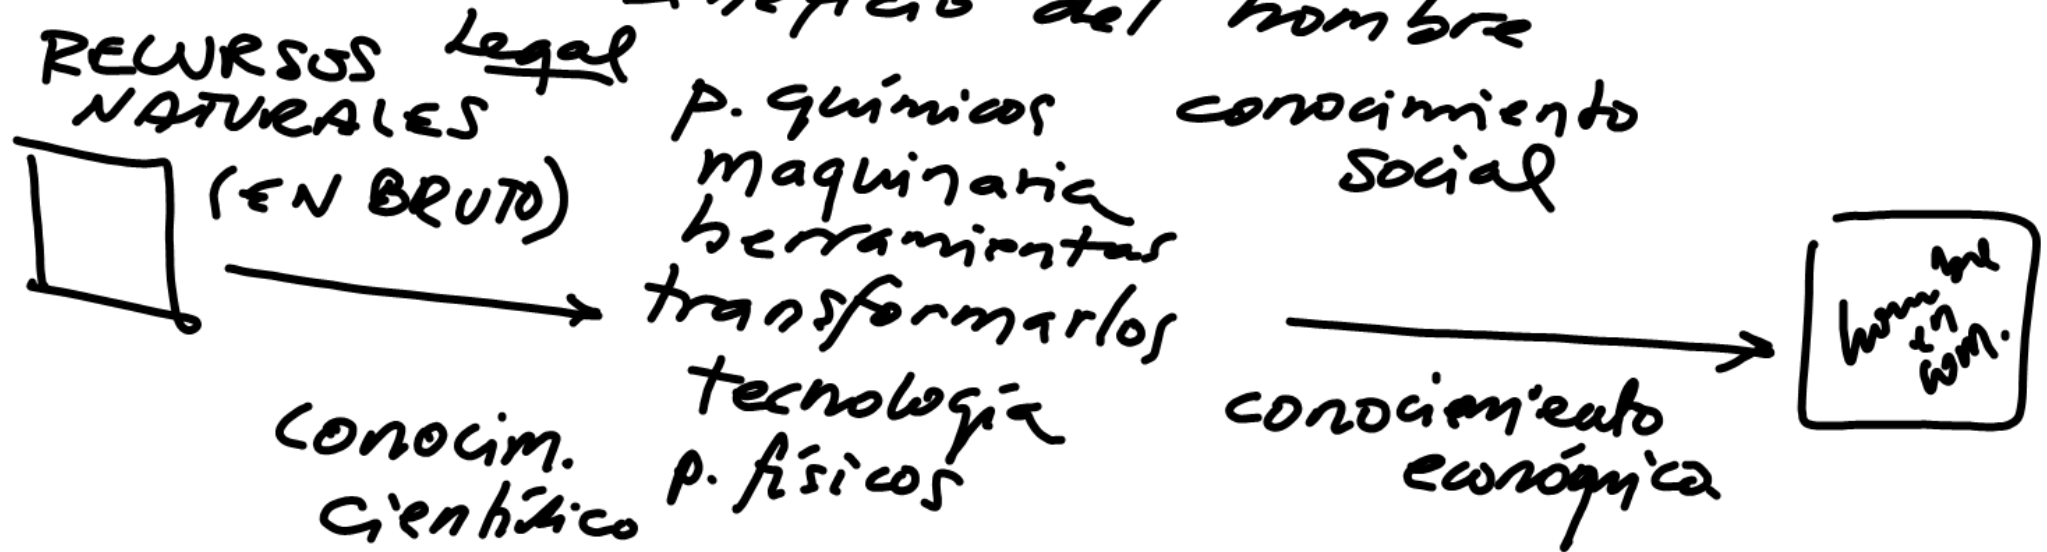 beneficio del hombre
RECURSOS Legal
NATURALES
(EN BRUTO)
p. químicos
maquinaria
herramientas
transformarlos
tecnología
p. físicos
conocim.
científico
conocimiento
social
conocimiento
económica
en
com.